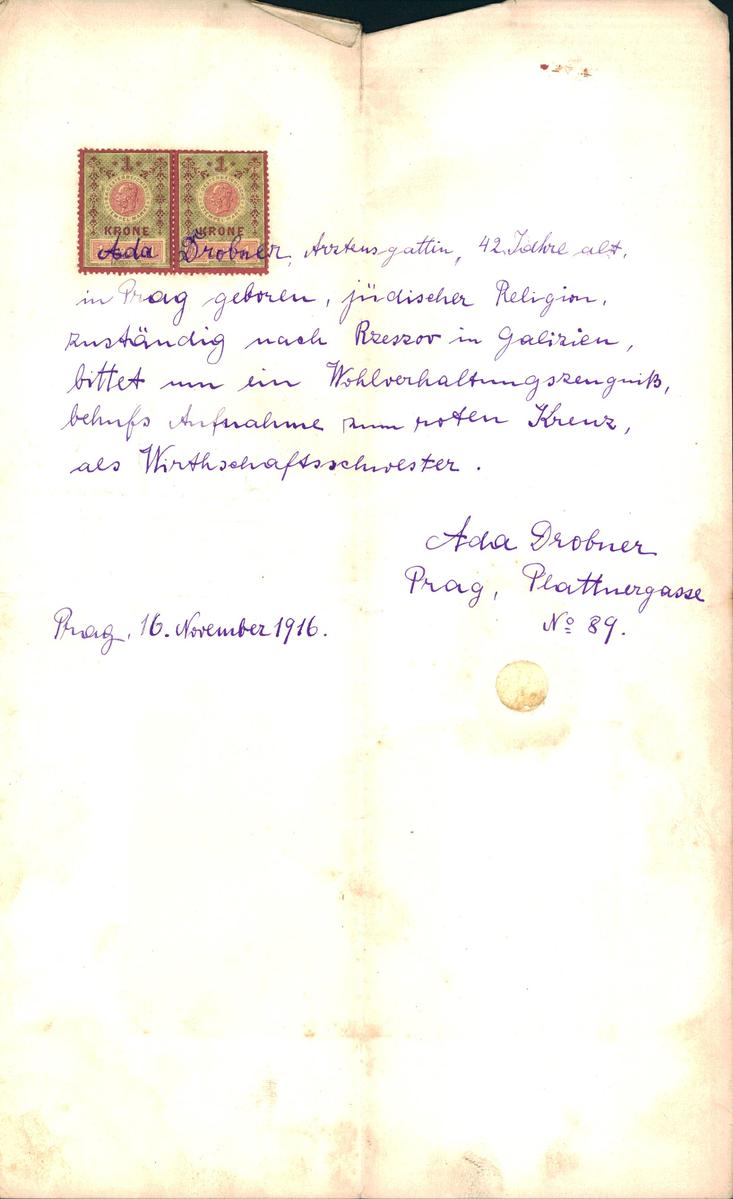 1 1
KRONE KRONE
Ada Drobner, Arztensgattin, 42 Jahre alt,
in Prag geboren, jüdischer Religion,
zuständig nach Rzeszov in Galizien,
bittet um ein Wohlverhaltungszeugniß,
behufs Aufnahme zum roten Kreuz,
als Wirthschaftsschwester.
Ada Drobner
Prag, Plattnergasse
No 89.
Prag, 16. November 1916.